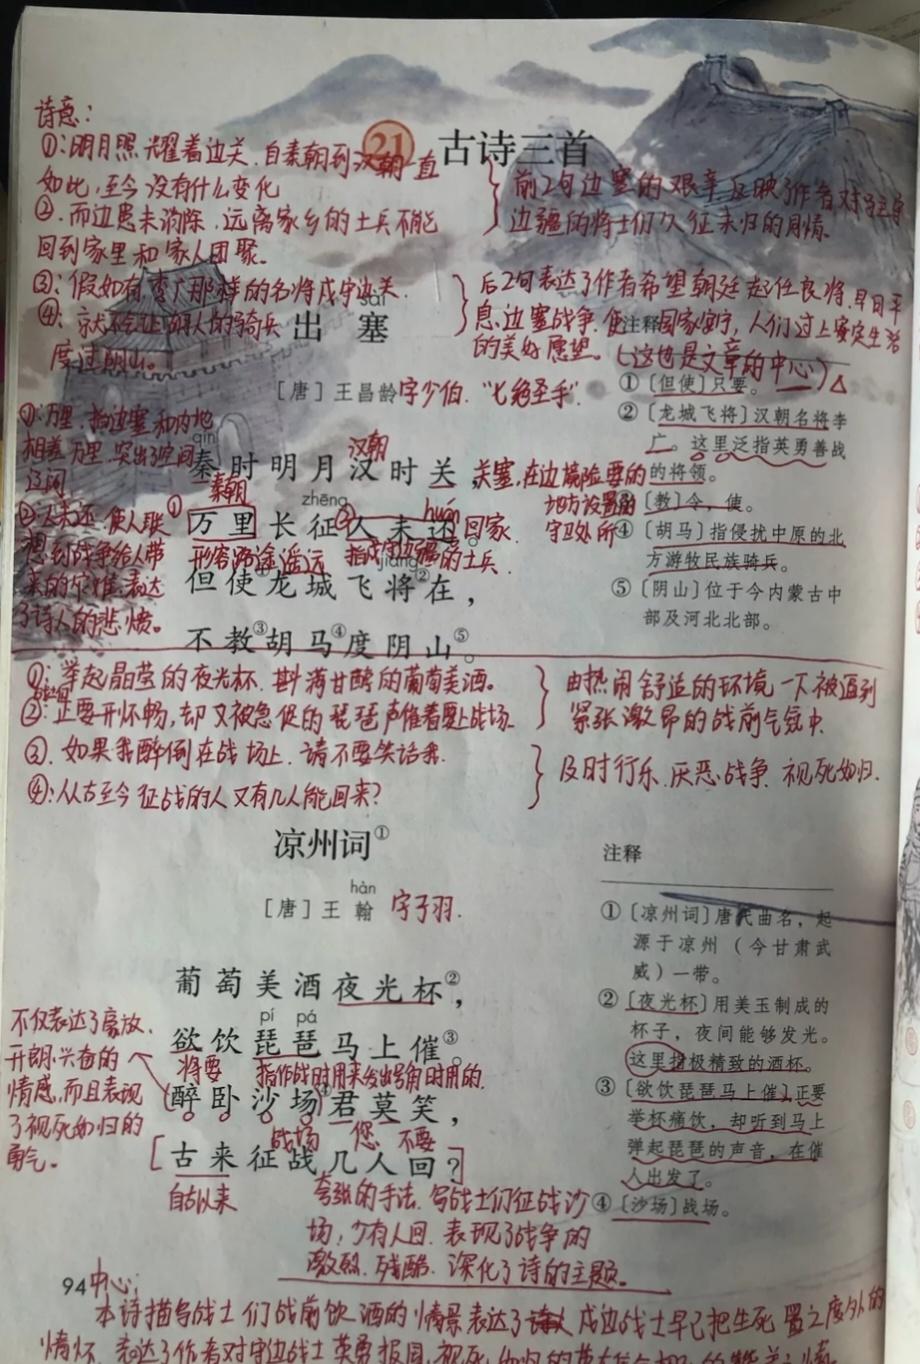 诗意：
①：明月照耀着边关，自秦朝到汉朝一直
如此，至今没有什么变化
②．而边患未消除，远离家乡的士兵不能
回到家里和家人团聚。
③：假如有李广那样的名将戍守边关．
④：
度过阴山。
前2句边塞的艰辛反映了作者对
边疆的将士们久征未归的同情．
后2句表达了作者希望朝廷起任良将，早日平
息边塞战争，使国家安宁，人们过上安定生活
的美好愿望。（这也是文章的中心）△
21 古诗三首
sài
出塞
［唐］王昌龄字少伯．“七绝圣手”．
①：万里，指边塞和内地
相差万里，突出了空间
辽阔
②人未还，使人联
想到战争给人带
来的灾难，表达
了诗人的悲愤。
qín
秦时明月汉时关，
秦朝
汉朝
关塞，在边境险要的
地方设置的
守卫处所
zhēng
huán
①万里长征②人未还。
回家
形容路途遥远
指戍守边疆的士兵．
jiàng
但使①龙城飞将②在，
不教③胡马④度阴山⑤。
注释
①〔但使〕只要。
②〔龙城飞将〕汉朝名将李
广。这里泛指英勇善战
的将领。
③〔教〕令，使。
④〔胡马〕指侵扰中原的北
方游牧民族骑兵。
⑤〔阴山〕位于今内蒙古中
部及河北北部。
①：举起晶莹的夜光杯，斟满甘醇的葡萄美酒。
②：正要开怀畅，却又被急促的琵琶声催着要上战场．
③．如果我醉倒在战场上，请不要笑话我．
④：从古至今征战的人又有几人能回来？
由热闹舒适的环境一下被逼到
紧张激昂的战前气氛中．
及时行乐．厌恶战争．视死如归．
凉州词①
hàn
［唐］王翰 字子羽．
葡萄美酒夜光杯②，
pí pá
欲饮琵琶马上催③。
将要
指作战时用来发出号角时用的．
醉卧沙场④君莫笑，
战场 您 不要
古来征战几人回？
自古以来
不仅表达了豪放、
开朗、兴奋的
情感，而且表现
了视死如归的
勇气。
夸张的手法．写战士们征战沙
场，少有人回．表现了战争的
激烈．残酷．深化了诗的主题。
注释
①〔凉州词〕唐代曲名，起
源于凉州（今甘肃武
威）一带。
②〔夜光杯〕用美玉制成的
杯子，夜间能够发光。
这里指极精致的酒杯。
③〔欲饮琵琶马上催〕正要
举杯痛饮，却听到马上
弹起琵琶的声音，在催
人出发了。
④〔沙场〕战场。
94
中心：
本诗描写战士们战前饮酒的情景表达了戍边战士早已把生死置之度外的
情怀．表达了作者对守边战士英勇报国，视死如归的